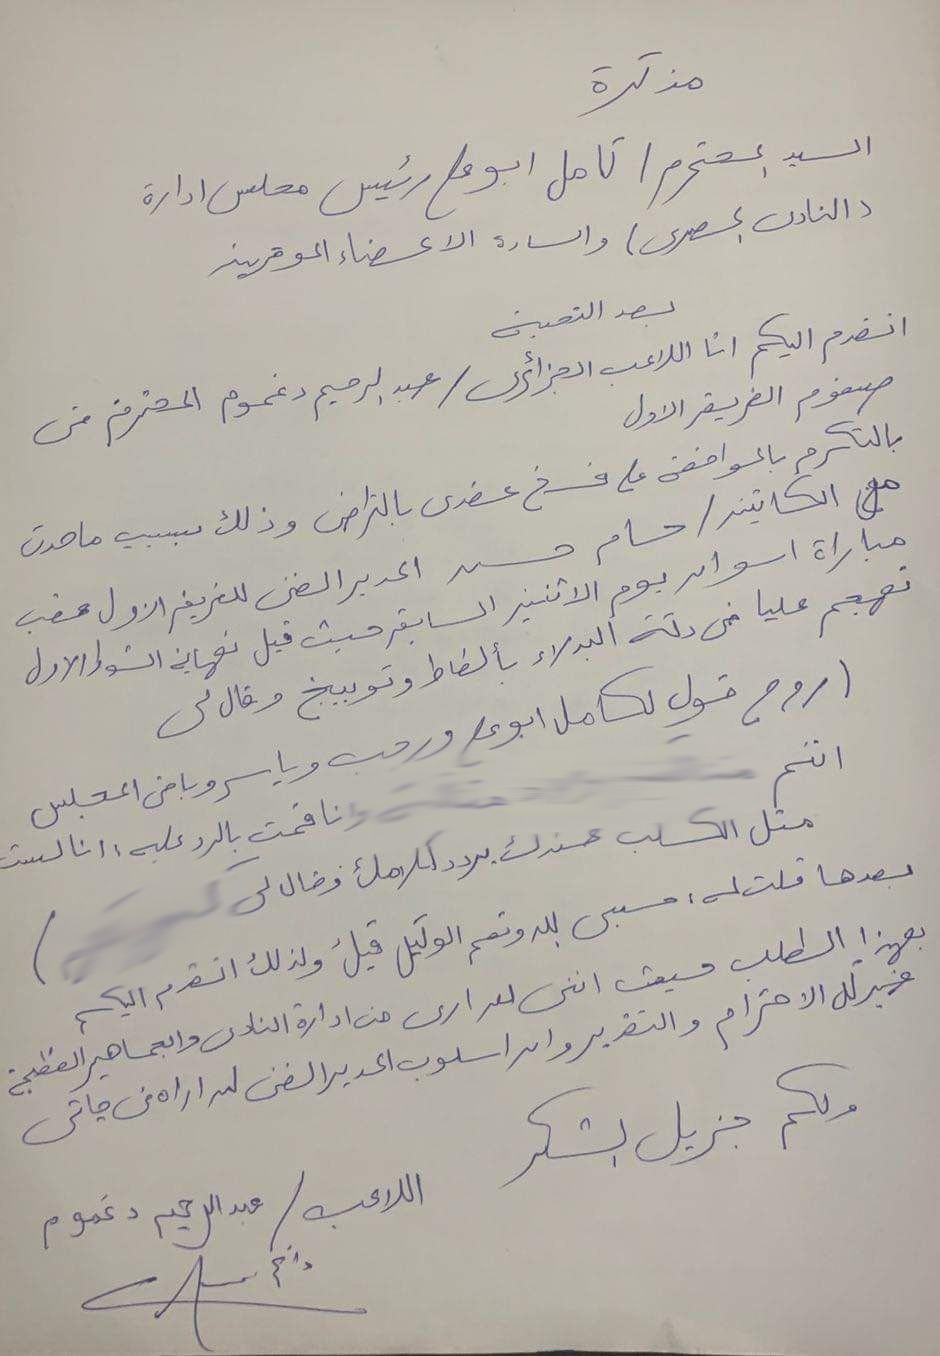 مذكرة
السيد المحترم / كامل ابو علي رئيس مجلس ادارة
(النادى المصرى) والسادة الاعضاء الموقرين
بعد التحية
اتقدم اليكم انا اللاعب الجزائرى / عبد الرحيم دغموم المحترف فى
صفوف الفريق الاول
بالتكرم بالموافقة على فسخ عقدى بالتراضى وذلك بسبب ماحدث
مع الكابتن / حسام حسن المدير الفنى للفريق الاول عقب
مباراة اسوان يوم الاثنين السابق حيث قبل نهاية الشوط الاول
تهجم عليا فى دكة البدلاء بألفاظ وتوبيخ وقال لى
(روح قول لكامل ابو علي ورجب وياسر وباقى المجلس
انتم وانا قمت بالرد عليه : انا لست
مثل الكلب عندك بردد كلامك فقال لى )
بعدها قلت له : حسبى الله ونعم الوكيل فيك ولذلك اتقدم اليكم
بهذا الطلب حيث اننى لم ارى من ادارة النادى والجماهير العظيمة
غير كل الاحترام والتقدير وان اسلوب المدير الفنى لم اراه فى حياتى
ولكم جزيل الشكر
اللاعب / عبد الرحيم دغموم